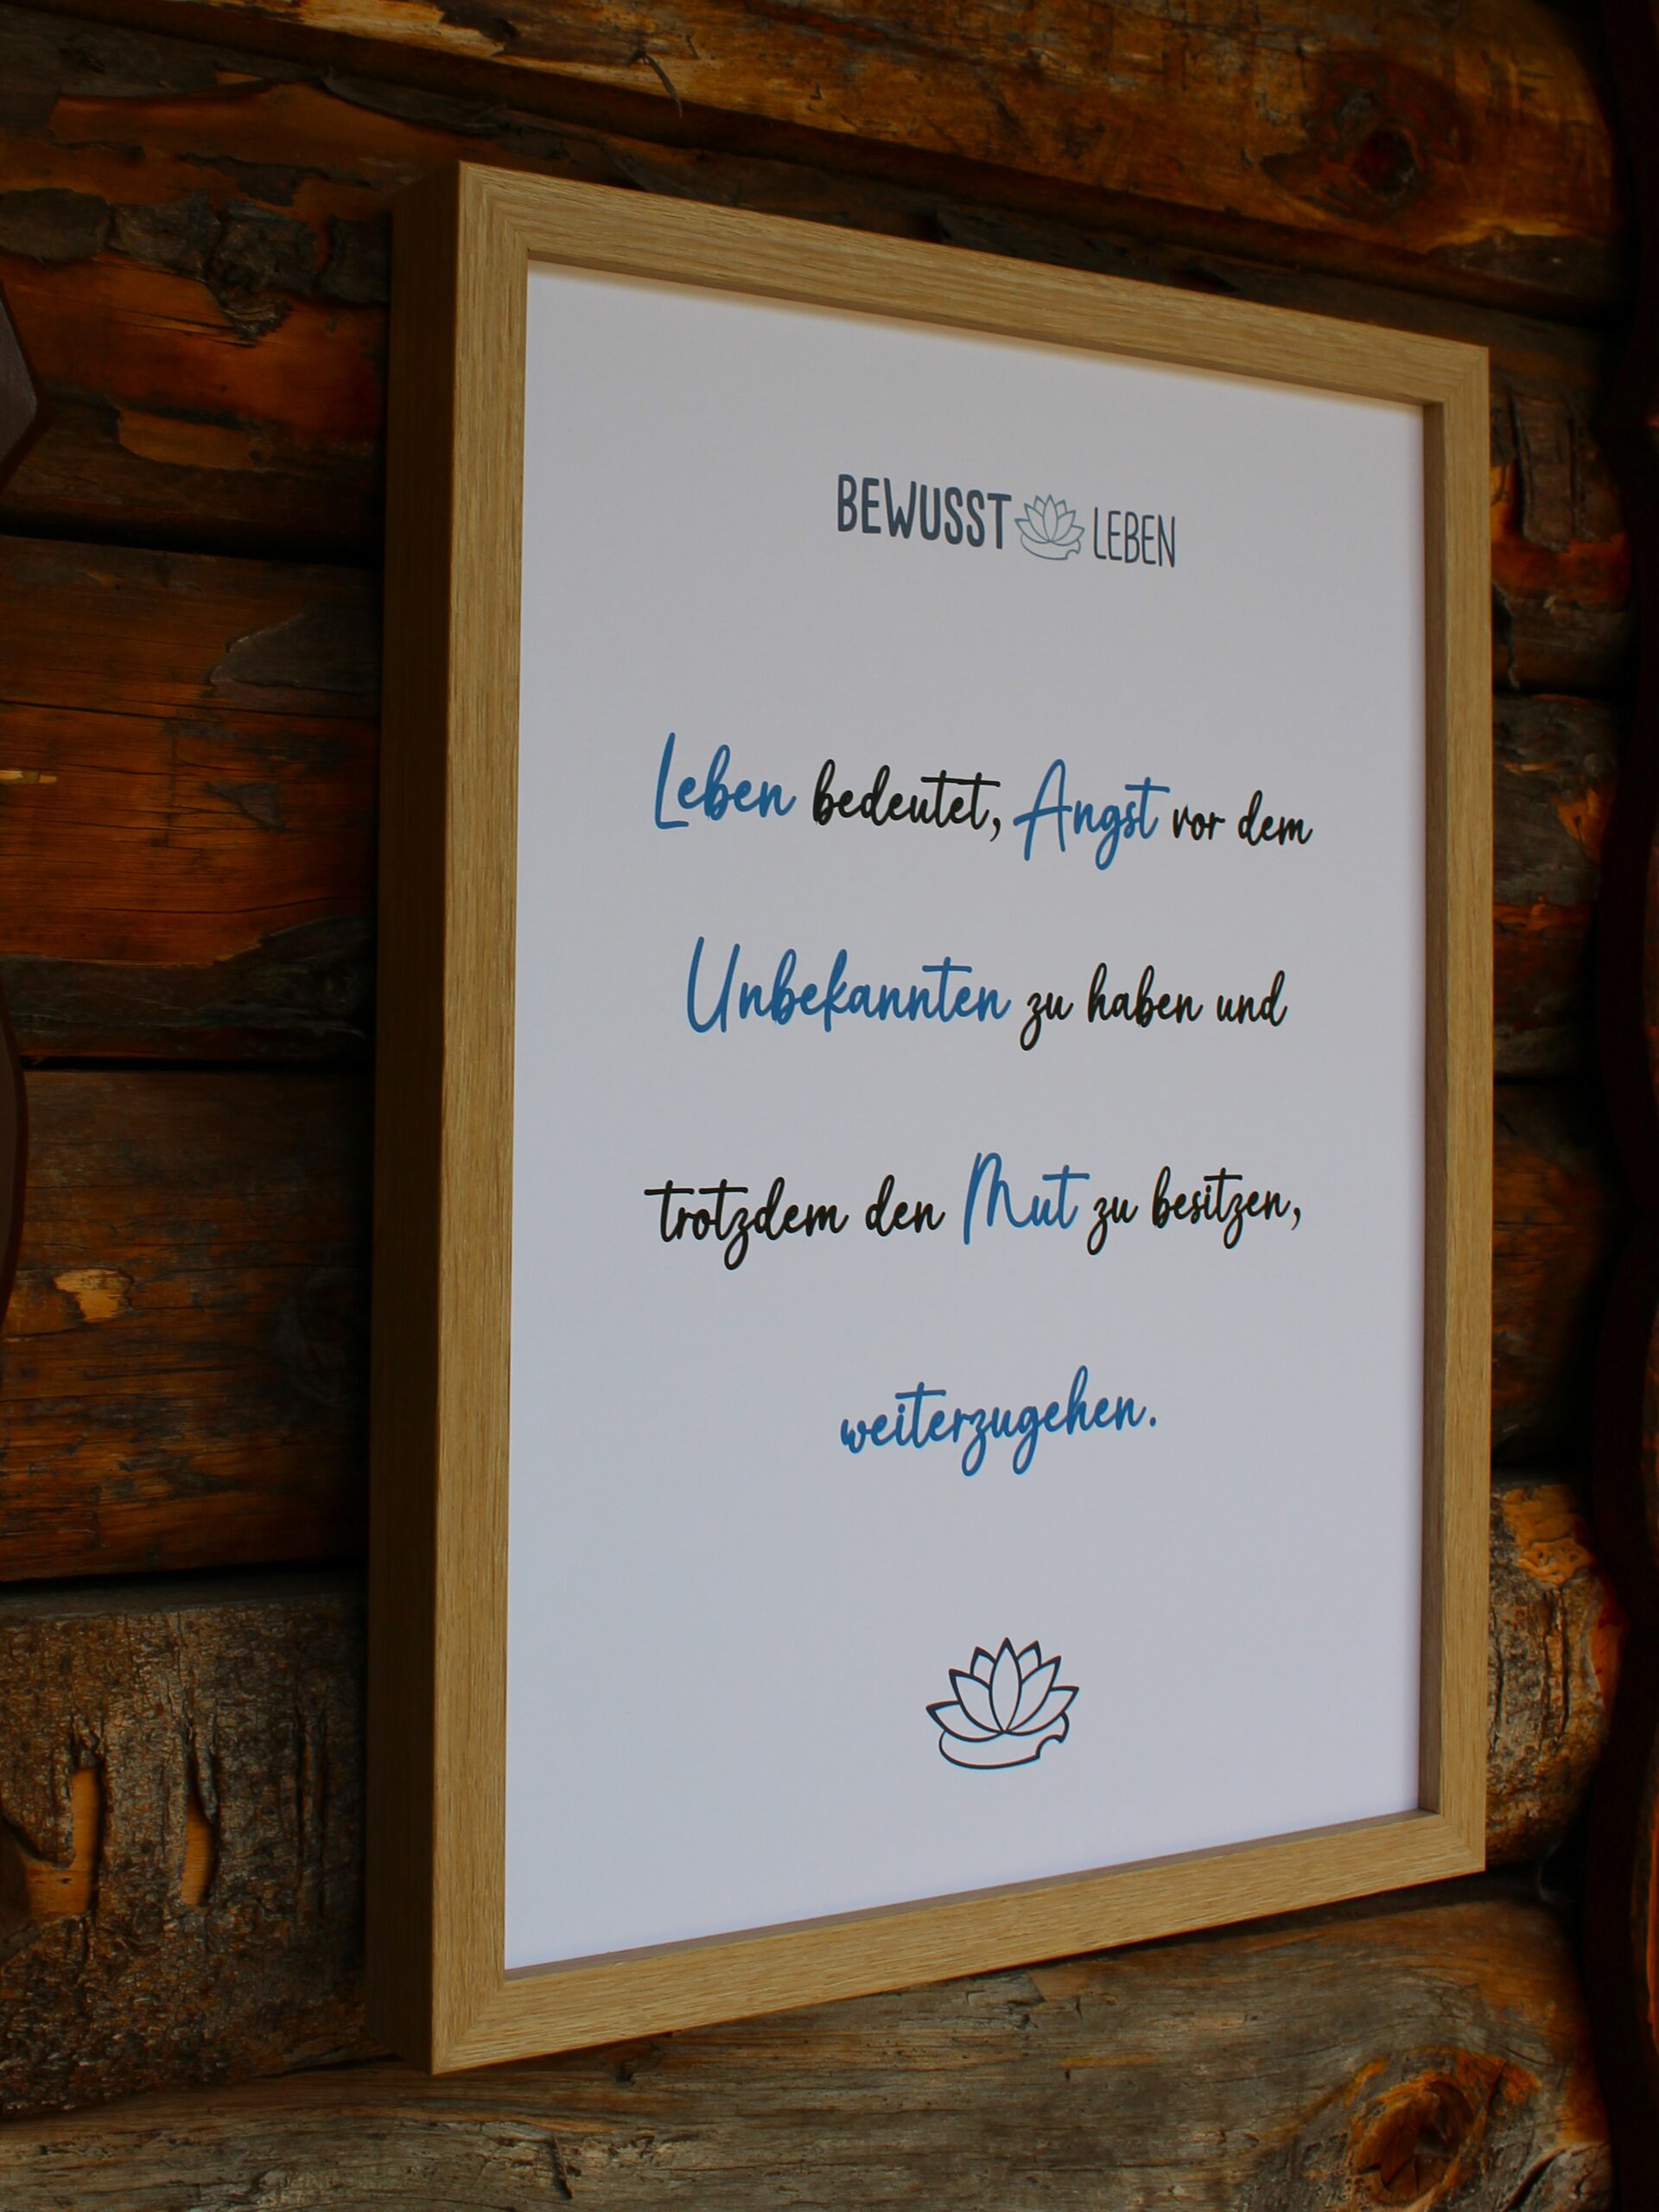 BEWUSST LEBEN
Leben bedeutet, Angst vor dem
Unbekannten zu haben und
trotzdem den Mut zu besitzen,
weiterzugehen.